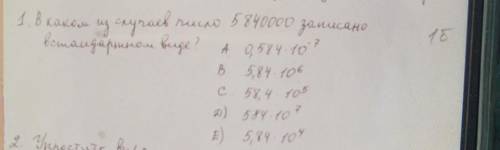 1. В каком из случаев число 5840000 записано
встандартном виде? 1б
A 0,584 · 10⁻⁷
B 5,84 · 10⁶
C 58,4 · 10⁵
Д) 584 · 10⁷
E) 5,84 · 10⁴
2. Упростите